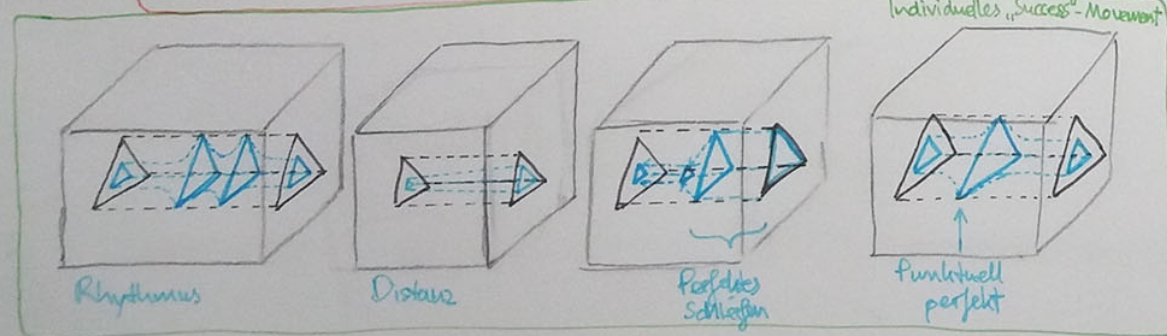 Individuelles „Success"-Movement
Rhythmus
Distanz
Perfektes
Schleifen
Punktuell
perfekt